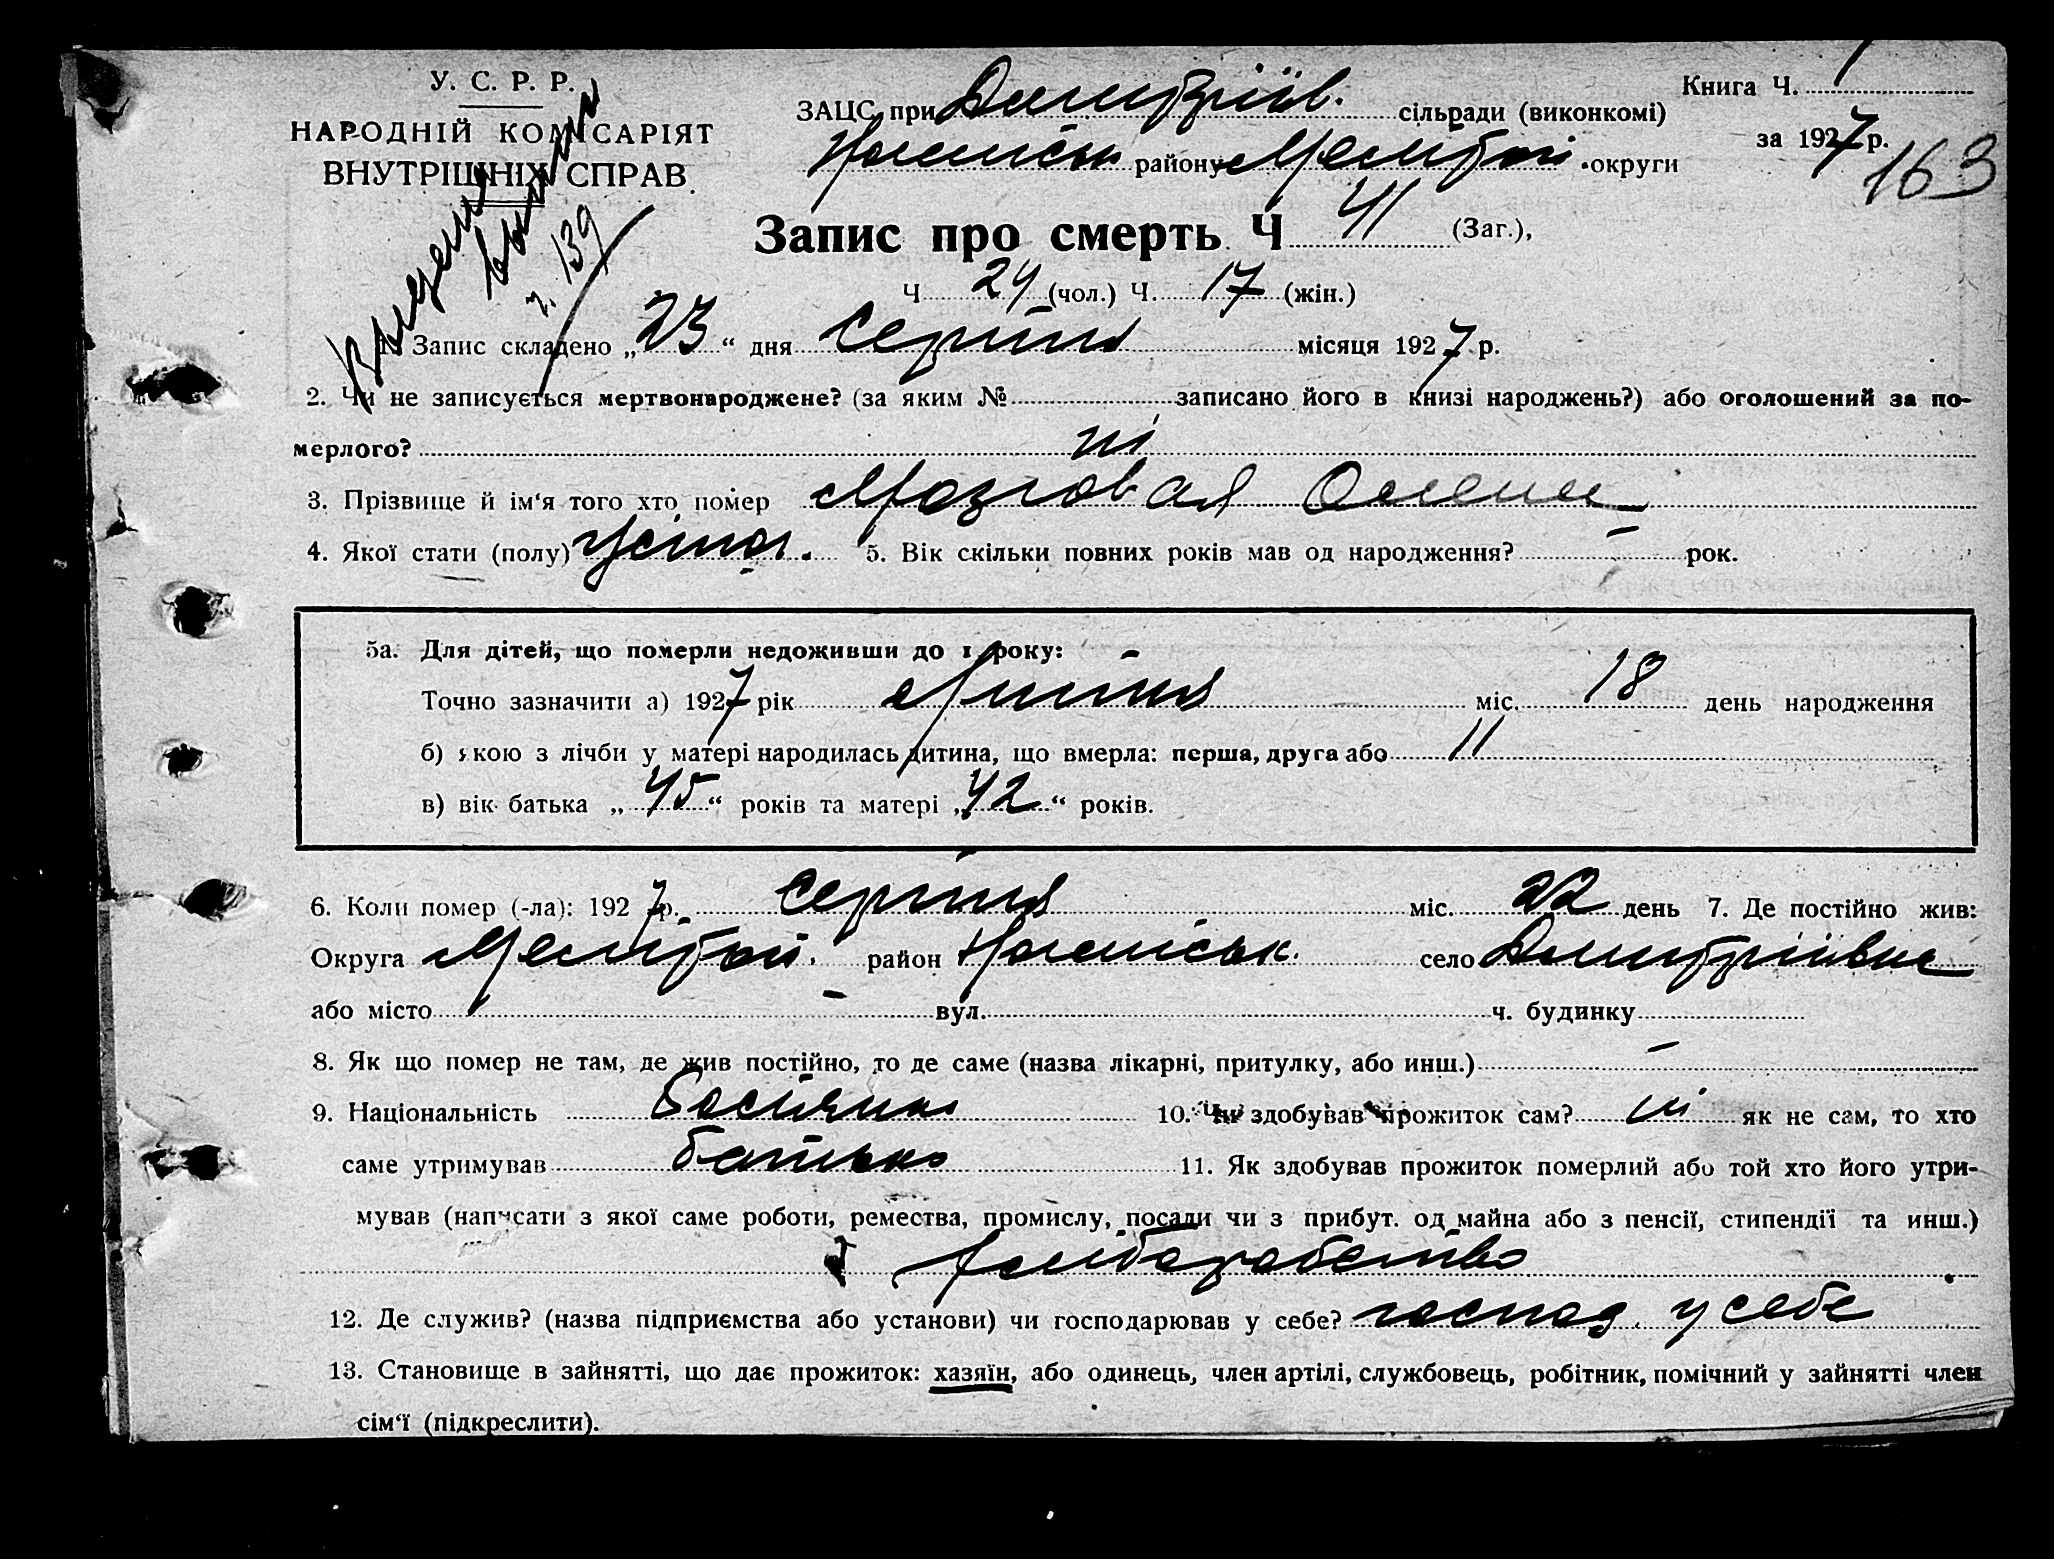 У. С. Р. Р.
НАРОДНІЙ КОМІСАРІЯТ
ВНУТРІШНІХ СПРАВ
ч. 139
Книга Ч. 1
за 1927 р.
163
ЗАЦС при Дмитріїв. сільради (виконкомі)
району округи
Запис про смерть Ч 41 (Заг.),
Ч 24 (чол.) Ч. 17 (жін.)
1. Запис складено „23“ дня Серпня місяця 1927 р.
2. Чи не записується мертвонароджене? (за яким № записано його в книзі народжень?) або оголошений за по-
мерлого? ні
3. Прізвище й ім‘я того хто помер Мозговая Олена
4. Якої стати (полу) 5. Вік скільки повних років мав од народження? – рок.
5а. Для дітей, що померли недоживши до 1 року:
Точно зазначити а) 1927 рік Липня міс. 18 день народження
б) якою з лічби у матері народилась дитина, що вмерла: перша, друга або 11
в) вік батька „45“ років та матері „42“ років.
6. Коли помер (-ла): 1927 р. Серпня міс. 22 день 7. Де постійно жив:
Округа район село Дмитріївка
або місто – вул. ч. будинку
8. Як що помер не там, де жив постійно, то де саме (назва лікарні, притулку, або инш.) –
9. Національність 10. Чи здобував прожиток сам? ні як не сам, то хто
саме утримував батько 11. Як здобував прожиток померлий або той хто його утри-
мував (написати з якої саме роботи, ремества, промислу, посади чи з прибут. од майна або з пенсії, стипендії та инш.)
хліборобство
12. Де служив? (назва підприємства або установи) чи господарював у себе? господ. у себе
13. Становище в зайнятті, що дає прожиток: хазяїн, або одинець, член артілі, службовець, робітник, помічний у зайнятті член
сім‘ї (підкреслити).